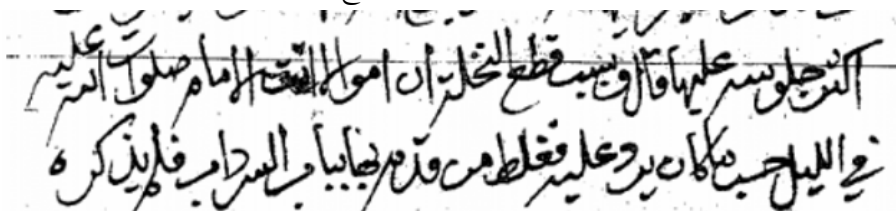 اكثر جلوسه عليها وقال وبسبب قطع النخلة ان اموالا الامام صلوات الله عليه
في الليل حسب ما كان يرد عليه فغلط من قدم بها بباب السرداب فلم يذكره